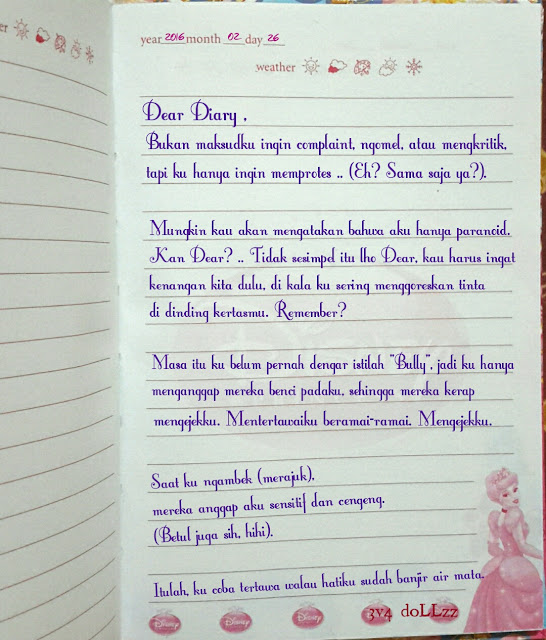 er
year 2016 month 02 day 26
weather
Dear Diary ,
Bukan maksudku ingin complaint, ngomel, atau mengkritik,
tapi ku hanya ingin memprotes .. (Eh? Sama saja ya?).
Mungkin kau akan mengatakan bahwa aku hanya paranoid.
Kan Dear? .. Tidak sesimpel itu lho Dear, kau harus ingat
kenangan kita dulu, di kala ku sering menggoreskan tinta
di dinding kertasmu. Remember?
Masa itu ku belum pernah dengar istilah "Bully", jadi ku hanya
menganggap mereka benci padaku, sehingga mereka kerap
mengejekku. Mentertawaiku beramai-ramai. Mengejekku.
Saat ku ngambek (merajuk),
mereka anggap aku sensitif dan cengeng.
(Betul juga sih, hihi).
Itulah, ku coba tertawa walau hatiku sudah banjir air mata.
Disney Disney Disney 3v4 doLLzz